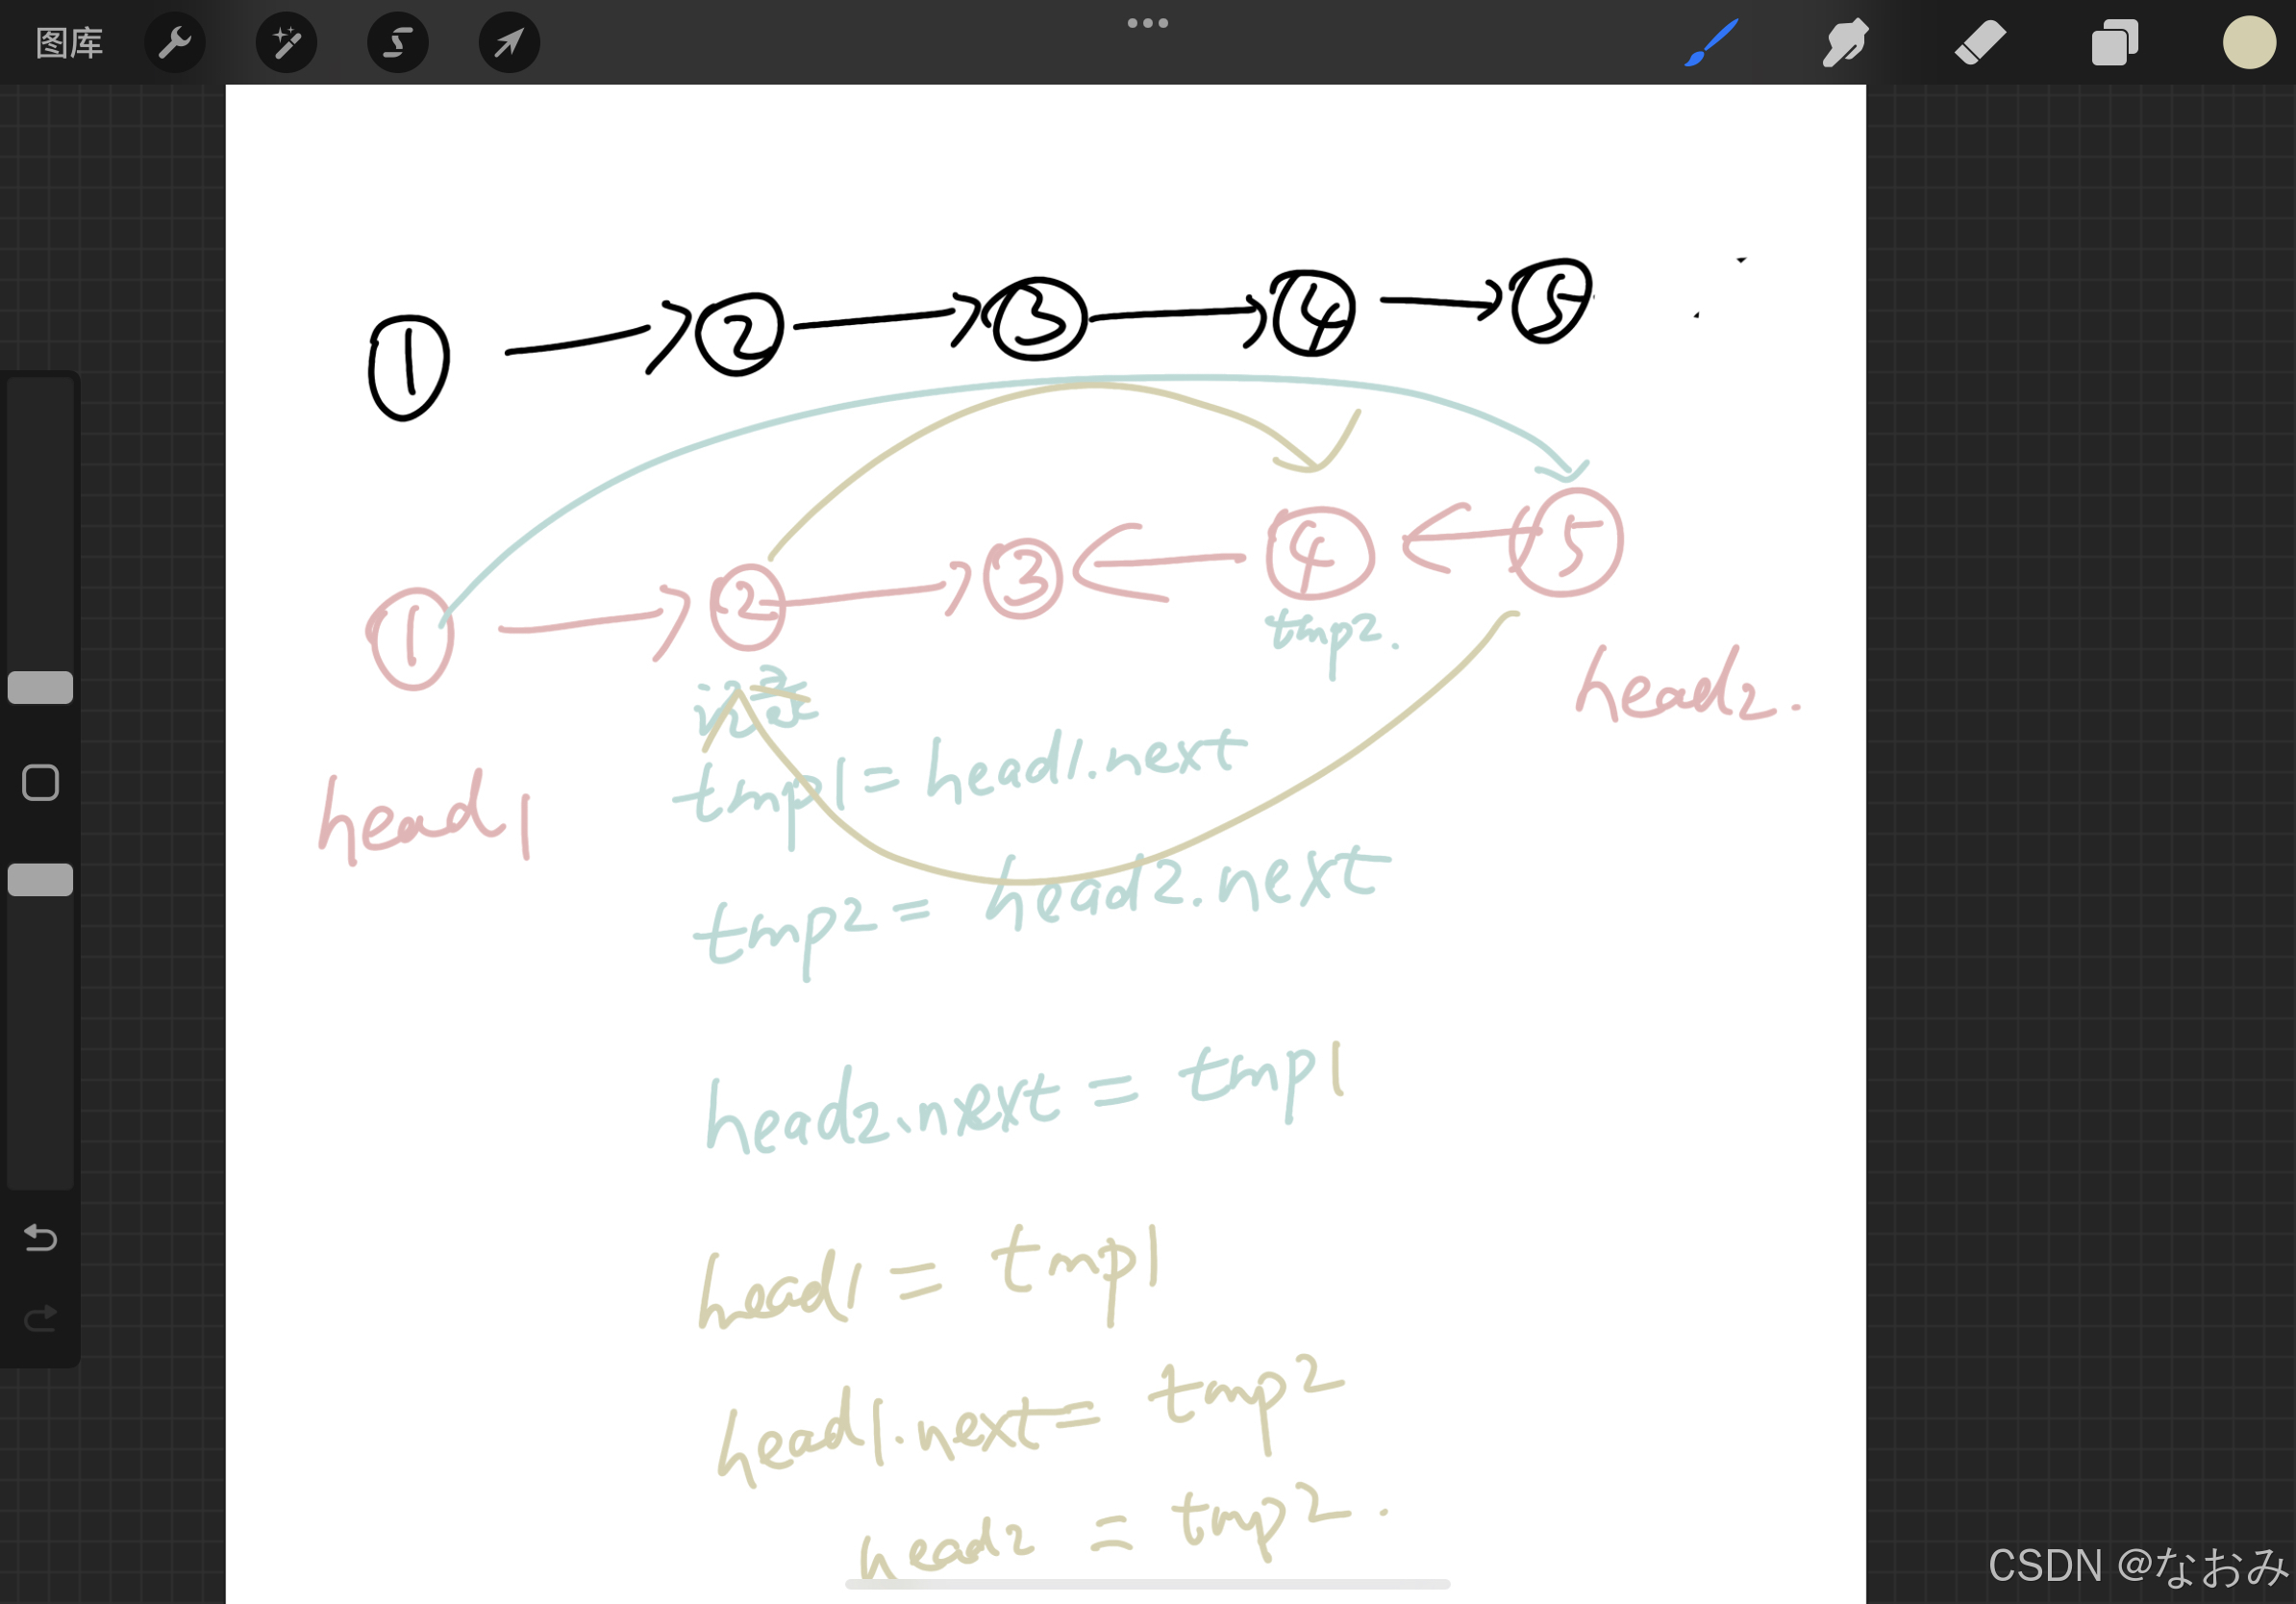 图库
1 2 3 4 5
1 2 3 4 5
tmp2.
head2.
tmp1 = head1.next
head1
tmp2 = head2.next
head2.next = tmp1
head1 = tmp1
head1.next = tmp2
head2 = tmp2.
CSDN @なおみ